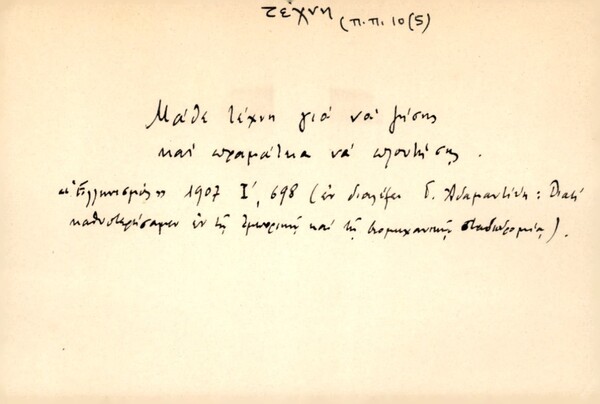 τέχνη (π.π. 10(5)
Μάθε τέχνη γιά νά ζήσης
καί πραμάτεια νά πλουτήσης.
«Ἑλληνισμός» 1907 Ι΄, 698 (ἐν διαλέξει Γ. Ἀδαμαντίδη: Διατί
καθυστερήσαμεν ἐν τῇ ἐμπορικῇ καί τῇ βιομηχανικῇ σταδιοδρομίᾳ).